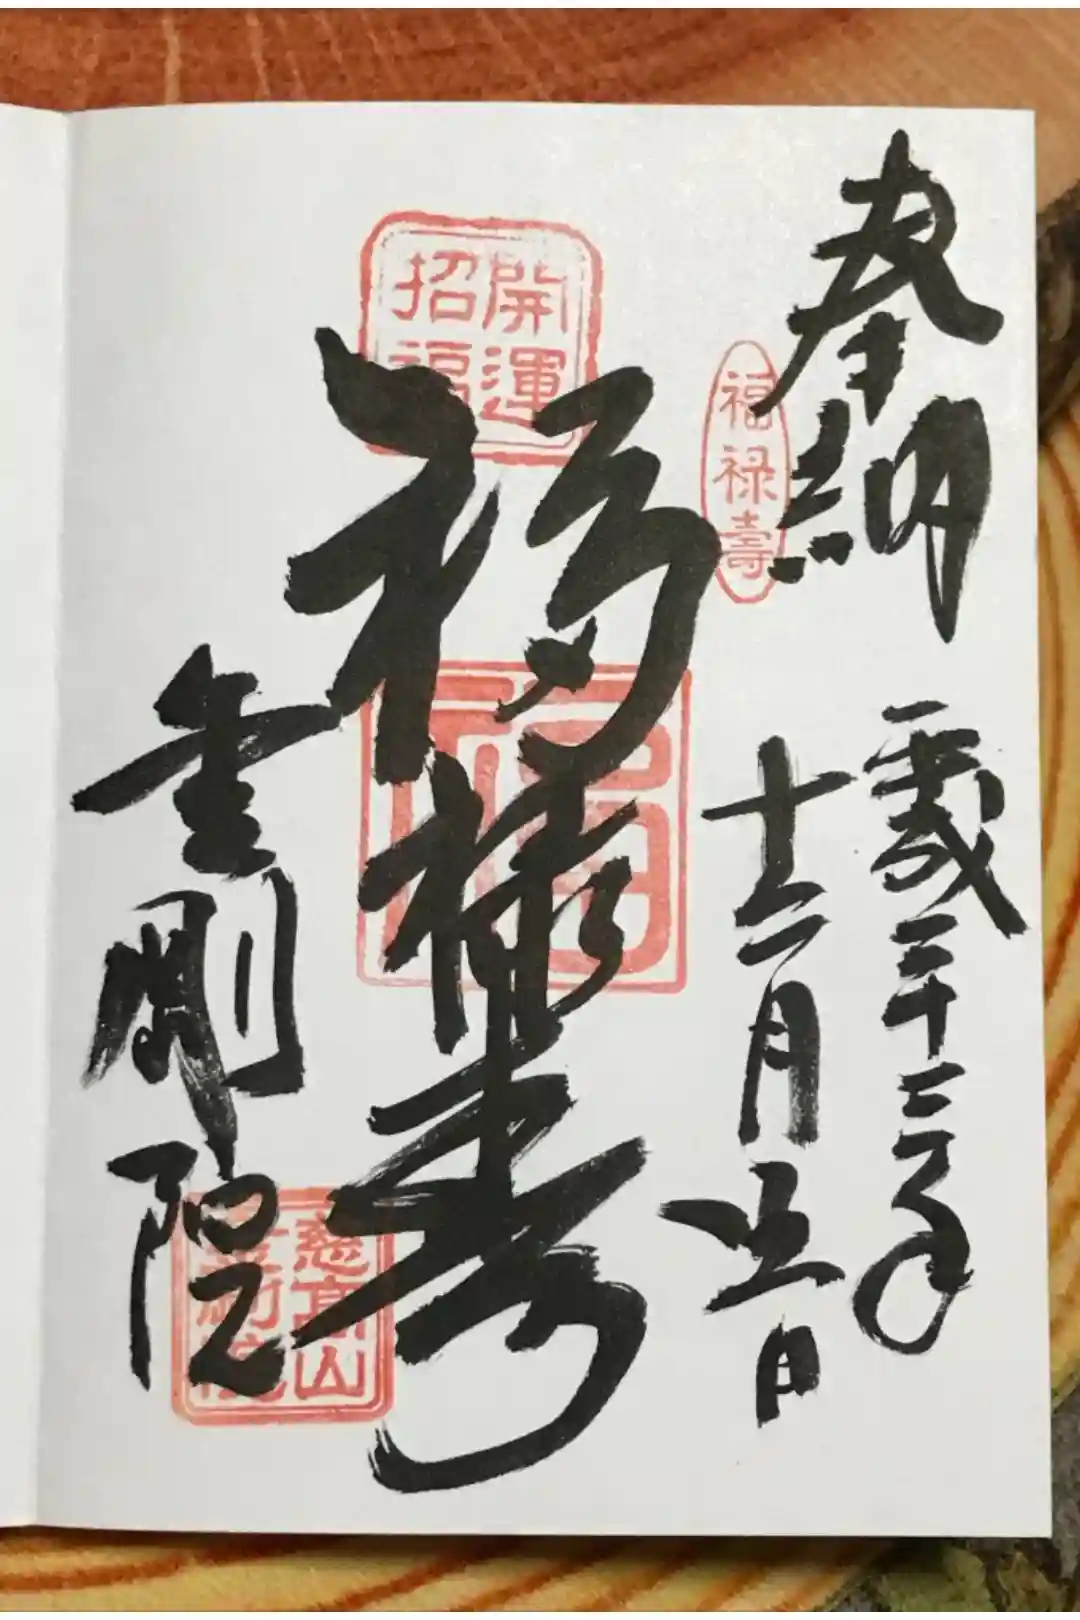 奉納
平成二十二年
十二月五日
福禄壽
開運
招福
福禄寿
福
金剛院
慈高山
金剛院